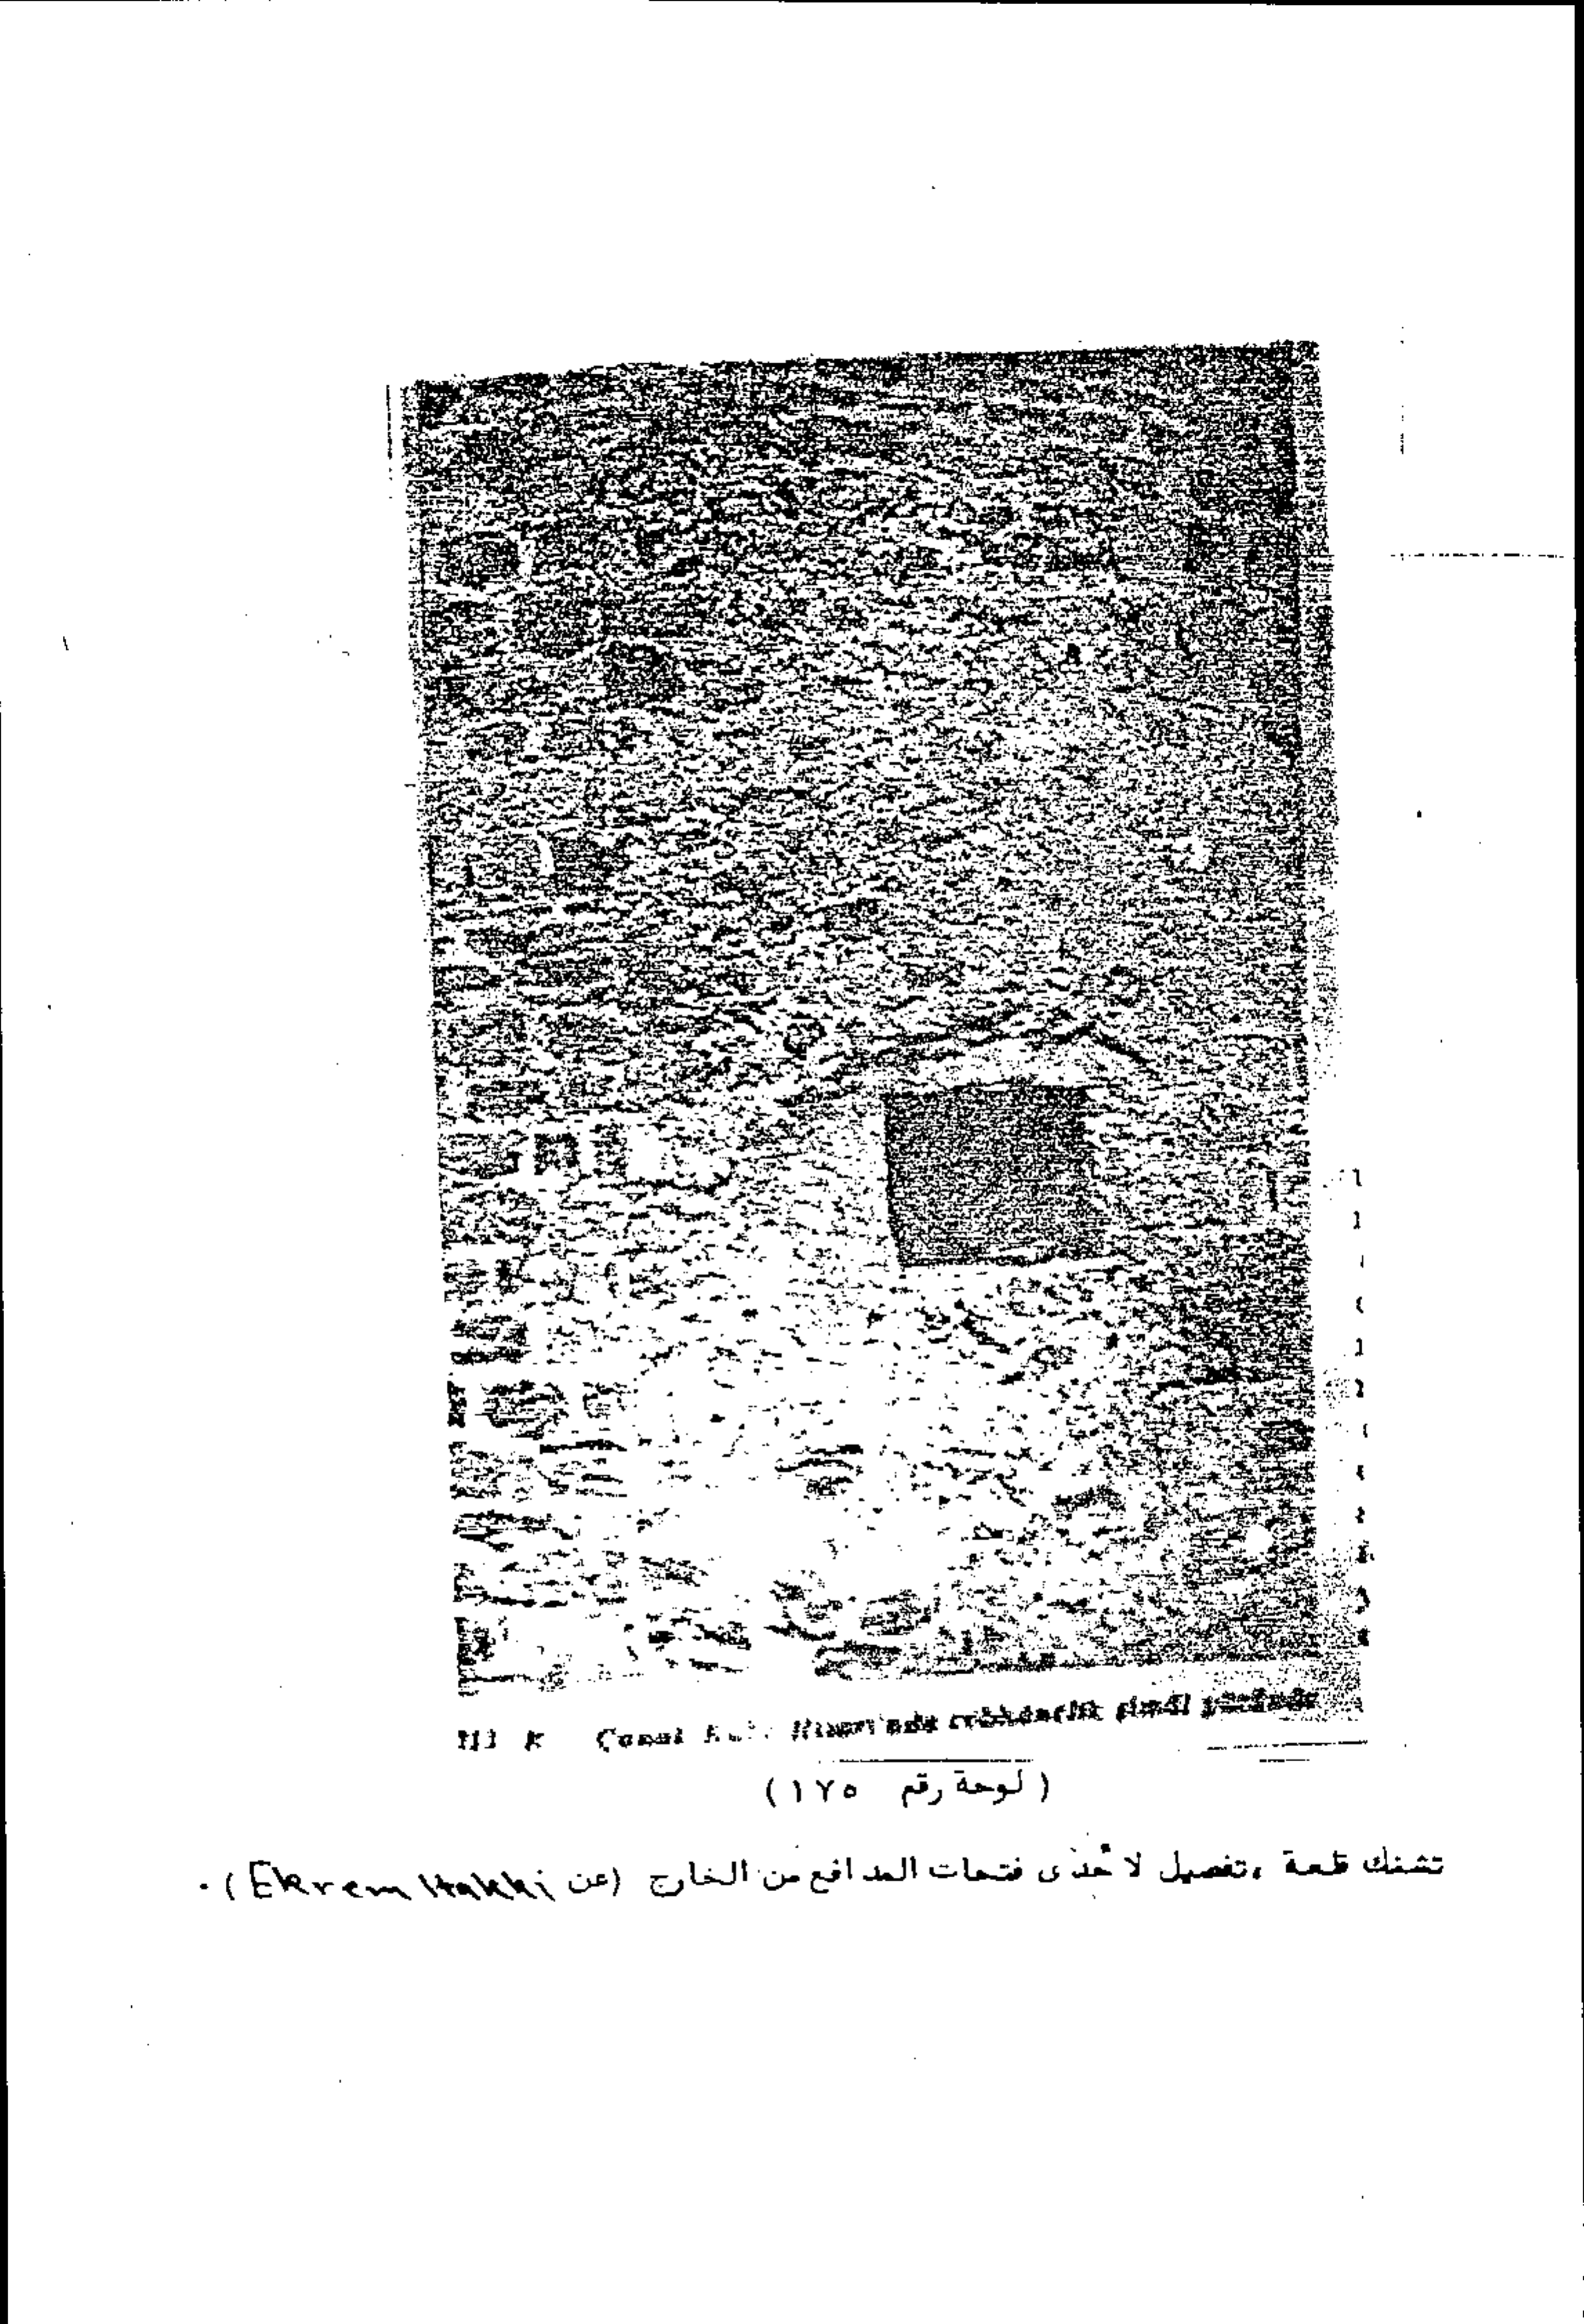 (لوحة رقم ١٧٥)
تشنك قلعة ، تفصيل لاحدى فتحات المدافع من الخارج (عن Ekrem Hakki) .